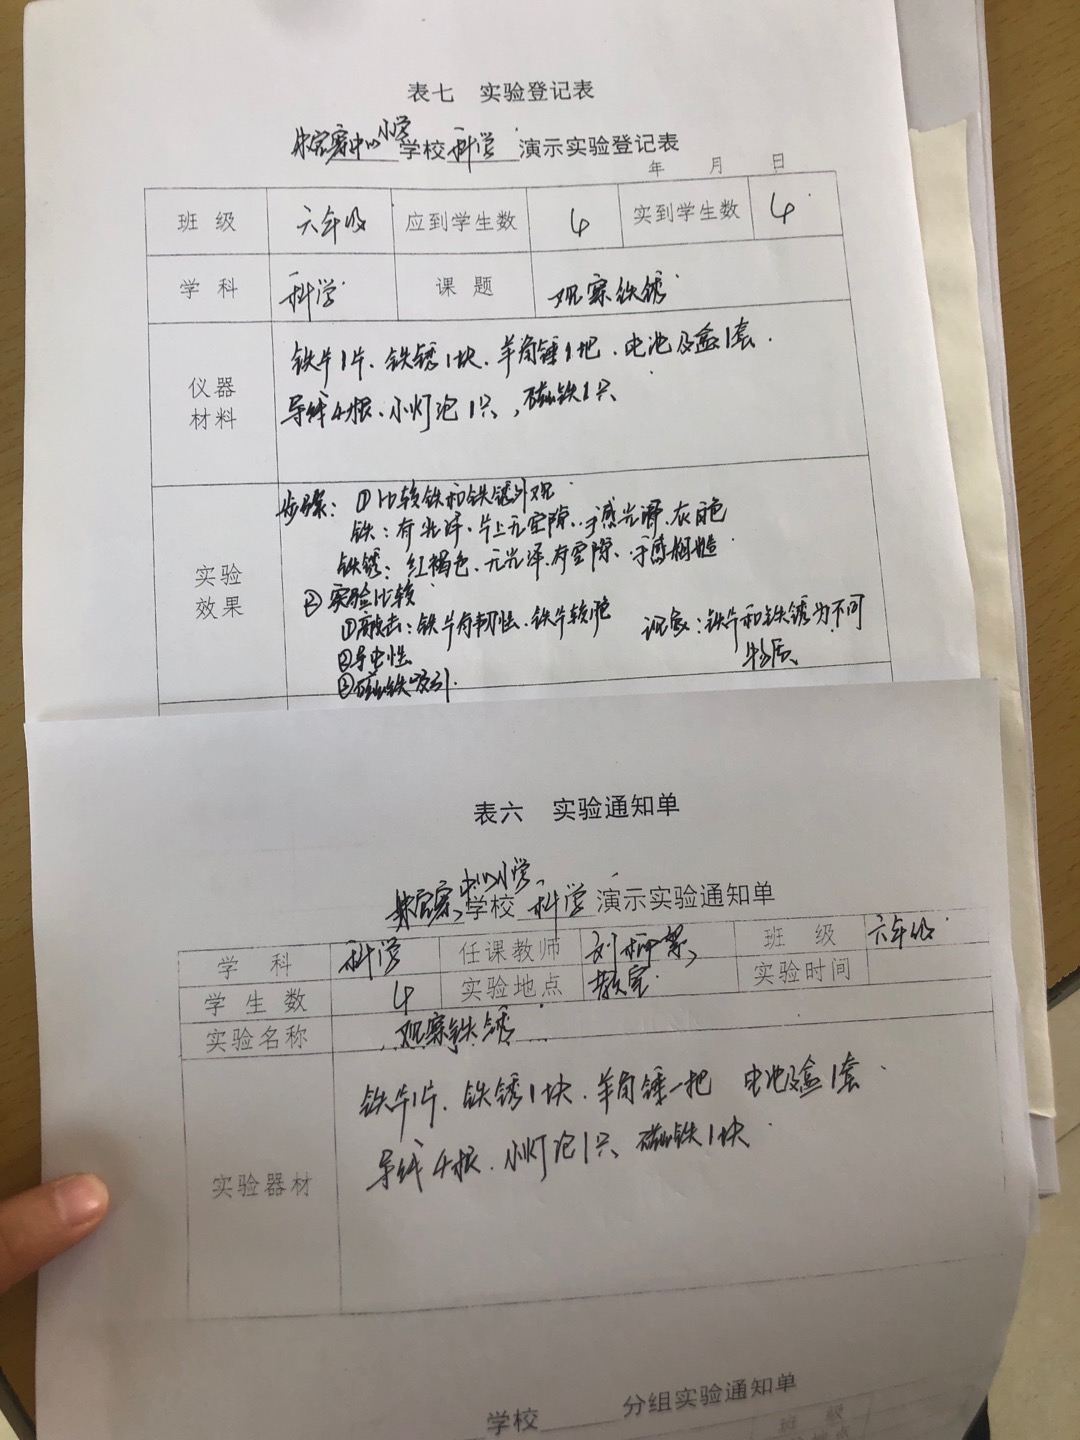 表七 实验登记表
中心小学学校科学演示实验登记表
年 月 日
班级 六年级 应到学生数 4 实到学生数 4
学科 科学 课题 观察铁锈
仪器材料
铁片1片、铁锈1块、羊角锤1把、电池及盒1套
导线4根、小灯泡1只,磁铁1只
实验效果
步骤:①比较铁和铁锈外观
铁:有光泽、片上无空隙、手感光滑、灰白色
铁锈:红褐色、无光泽、有空隙、手感粗糙
②实验比较
①敲击:铁片有韧性、铁片较脆
现象:铁片和铁锈为不同物质、
②导电性
③磁铁吸引
表六 实验通知单
中心小学学校科学演示实验通知单
学科 科学 任课教师 刘 班级 六年级
学生数 4 实验地点 教室 实验时间
实验名称 观察铁锈
实验器材
铁片1片、铁锈1块、羊角锤一把 电池及盒1套
导线4根、小灯泡1只、磁铁1块
学校 分组实验通知单
班级